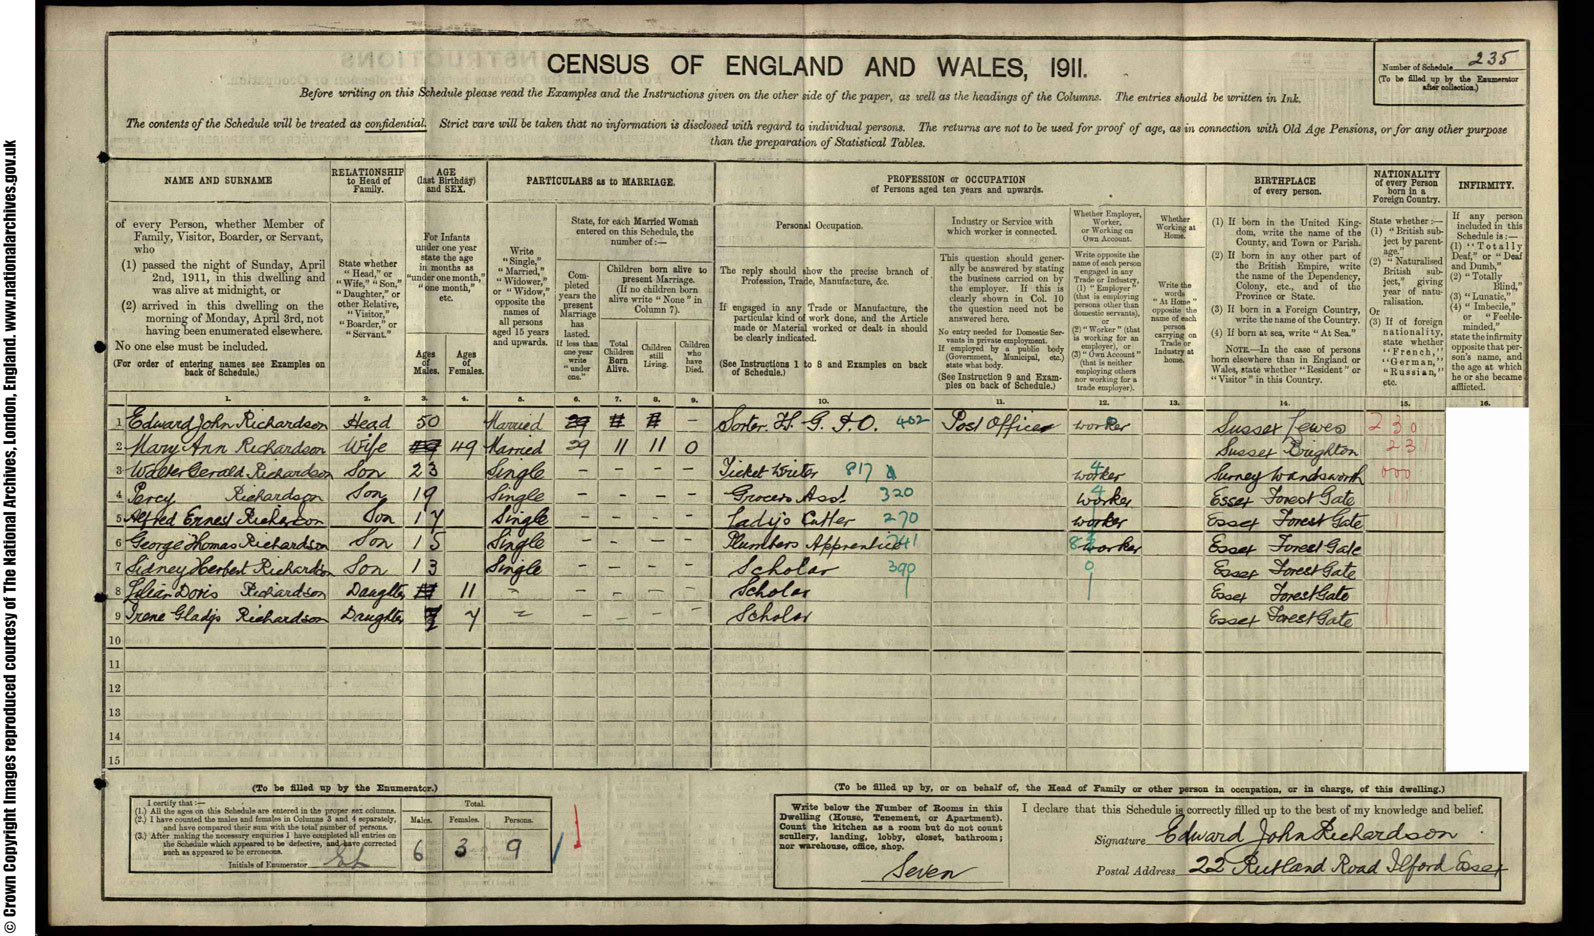 © Crown Copyright Images reproduced courtesy of The National Archives, London, England. www.nationalarchives.gov.uk
CENSUS OF ENGLAND AND WALES, 1911.
Number of Schedule 235
(To be filled up by the Enumerator after collection.)
Before writing on this Schedule please read the Examples and the Instructions given on the other side of the paper, as well as the headings of the Columns. The entries should be written in Ink.
The contents of the Schedule will be treated as confidential. Strict care will be taken that no information is disclosed with regard to individual persons. The returns are not to be used for proof of age, as in connection with Old Age Pensions, or for any other purpose
than the preparation of Statistical Tables.
NAME AND SURNAME
RELATIONSHIP to Head of Family.
AGE (last Birthday) and SEX.
PARTICULARS as to MARRIAGE.
PROFESSION or OCCUPATION of Persons aged ten years and upwards.
BIRTHPLACE of every person.
NATIONALITY of every Person born in a Foreign Country.
INFIRMITY.
of every Person, whether Member of
Family, Visitor, Boarder, or Servant,
who
(1) passed the night of Sunday, April
2nd, 1911, in this dwelling and
was alive at midnight, or
(2) arrived in this dwelling on the
morning of Monday, April 3rd, not
having been enumerated elsewhere.
No one else must be included.
(For order of entering names see Examples on
back of Schedule.)
State whether
"Head," or
"Wife," "Son,"
"Daughter," or
other Relative,
"Visitor,"
"Boarder," or
"Servant."
For Infants
under one year
state the age
in months as
"under one month,"
"one month,"
etc.
Ages of Males.
Ages of Females.
Write
"Single,"
"Married,"
"Widower,"
or "Widow,"
opposite the
names of
all persons
aged 15 years
and upwards.
State, for each Married Woman
entered on this Schedule, the
number of:—
Completed years the present Marriage has lasted. If less than one year write "under one."
Children born alive to
present Marriage.
(If no children born
alive write "None" in
Column 7).
Total Children Born Alive.
Children still Living.
Children who have Died.
Personal Occupation.
The reply should show the precise branch of
Profession, Trade, Manufacture, &c.
If engaged in any Trade or Manufacture, the
particular kind of work done, and the Article
made or Material worked or dealt in should
be clearly indicated.
(See Instructions 1 to 8 and Examples on back
of Schedule.)
Industry or Service with
which worker is connected.
This question should gener-
ally be answered by stating
the business carried on by
the employer. If this is
clearly shown in Col. 10
the question need not be
answered here.
No entry needed for Domestic Ser-
vants in private employment.
If employed by a public body
(Government, Municipal, etc.)
state what body.
(See Instruction 9 and Exam-
ples on back of Schedule.)
Whether Employer,
Worker,
or Working on
Own Account.
Write opposite the
name of each person
engaged in any
Trade or Industry,
(1) "Employer"
(that is employing
persons other than
domestic servants),
or
(2) "Worker" (that
is working for an
employer), or
(3) "Own Account"
(that is neither
employing others
nor working for a
trade employer).
Whether
Working at
Home.
Write the
words
"At Home"
opposite the
name of each
person
carrying on
Trade or
Industry at
home.
(1) If born in the United King-
dom, write the name of the
County, and Town or Parish.
(2) If born in any other part of
the British Empire, write
the name of the Dependency,
Colony, etc., and of the
Province or State.
(3) If born in a Foreign Country,
write the name of the Country.
(4) If born at sea, write "At Sea."
NOTE.—In the case of persons
born elsewhere than in England or
Wales, state whether "Resident" or
"Visitor" in this Country.
State whether:—
(1) "British sub-
ject by parent-
age."
(2) "Naturalised
British sub-
ject," giving
year of natu-
ralisation.
Or
(3) If of foreign
nationality,
state whether
"French,"
"German,"
"Russian,"
etc.
If any person
included in this
Schedule is:—
(1) "Totally
Deaf," or "Deaf
and Dumb,"
(2) "Totally
Blind,"
(3) "Lunatic,"
(4) "Imbecile,"
or "Feeble-
minded,"
state the infirmity
opposite that per-
son's name, and
the age at which
he or she became
afflicted.
1. 2. 3. 4. 5. 6. 7. 8. 9. 10. 11. 12. 13. 14. 15. 16.
1 Edward John Richardson Head 50 Married 29 11 11 – Sorter. H. G. P. O. 402 Post Office worker Sussex Lewes 230
2 Mary Ann Richardson Wife 49 49 Married 29 11 11 0 Sussex Brighton 231
3 Walter Gerald Richardson Son 23 Single – – – – Ticket Writer 817 4 worker Surrey Wandsworth 000
4 Percy Richardson Son 19 Single – – – – Grocers Asst. 320 4 worker Essex Forest Gate
5 Alfred Ernest Richardson Son 17 Single – – – – Ladys Cutler 270 worker Essex Forest Gate
6 George Thomas Richardson Son 15 Single – – – – Plumbers Apprentice 241 worker Essex Forest Gate
7 Sidney Herbert Richardson Son 13 Single – – – – Scholar 390 0 Essex Forest Gate
8 Lilian Doris Richardson Daughter 11 11 – – – – – Scholar Essex Forest Gate
9 Irene Gladys Richardson Daughter 7 7 – – – – Scholar Essex Forest Gate
10
11
12
13
14
15
(To be filled up by the Enumerator.)
I certify that:—
(1.) All the ages on this Schedule are entered in the proper sex columns.
(2.) I have counted the males and females in Columns 3 and 4 separately,
and have compared their sum with the total number of persons.
(3.) After making the necessary enquiries I have completed all entries on
the Schedule which appeared to be defective, and have corrected
such as appeared to be erroneous.
Initials of Enumerator
Total.
Males. Females. Persons.
6 3 9
(To be filled up by, or on behalf of, the Head of Family or other person in occupation, or in charge, of this dwelling.)
Write below the Number of Rooms in this
Dwelling (House, Tenement, or Apartment).
Count the kitchen as a room but do not count
scullery, landing, lobby, closet, bathroom;
nor warehouse, office, shop.
Seven
I declare that this Schedule is correctly filled up to the best of my knowledge and belief.
Signature Edward John Richardson
Postal Address 22 Rutland Road Ilford Essex